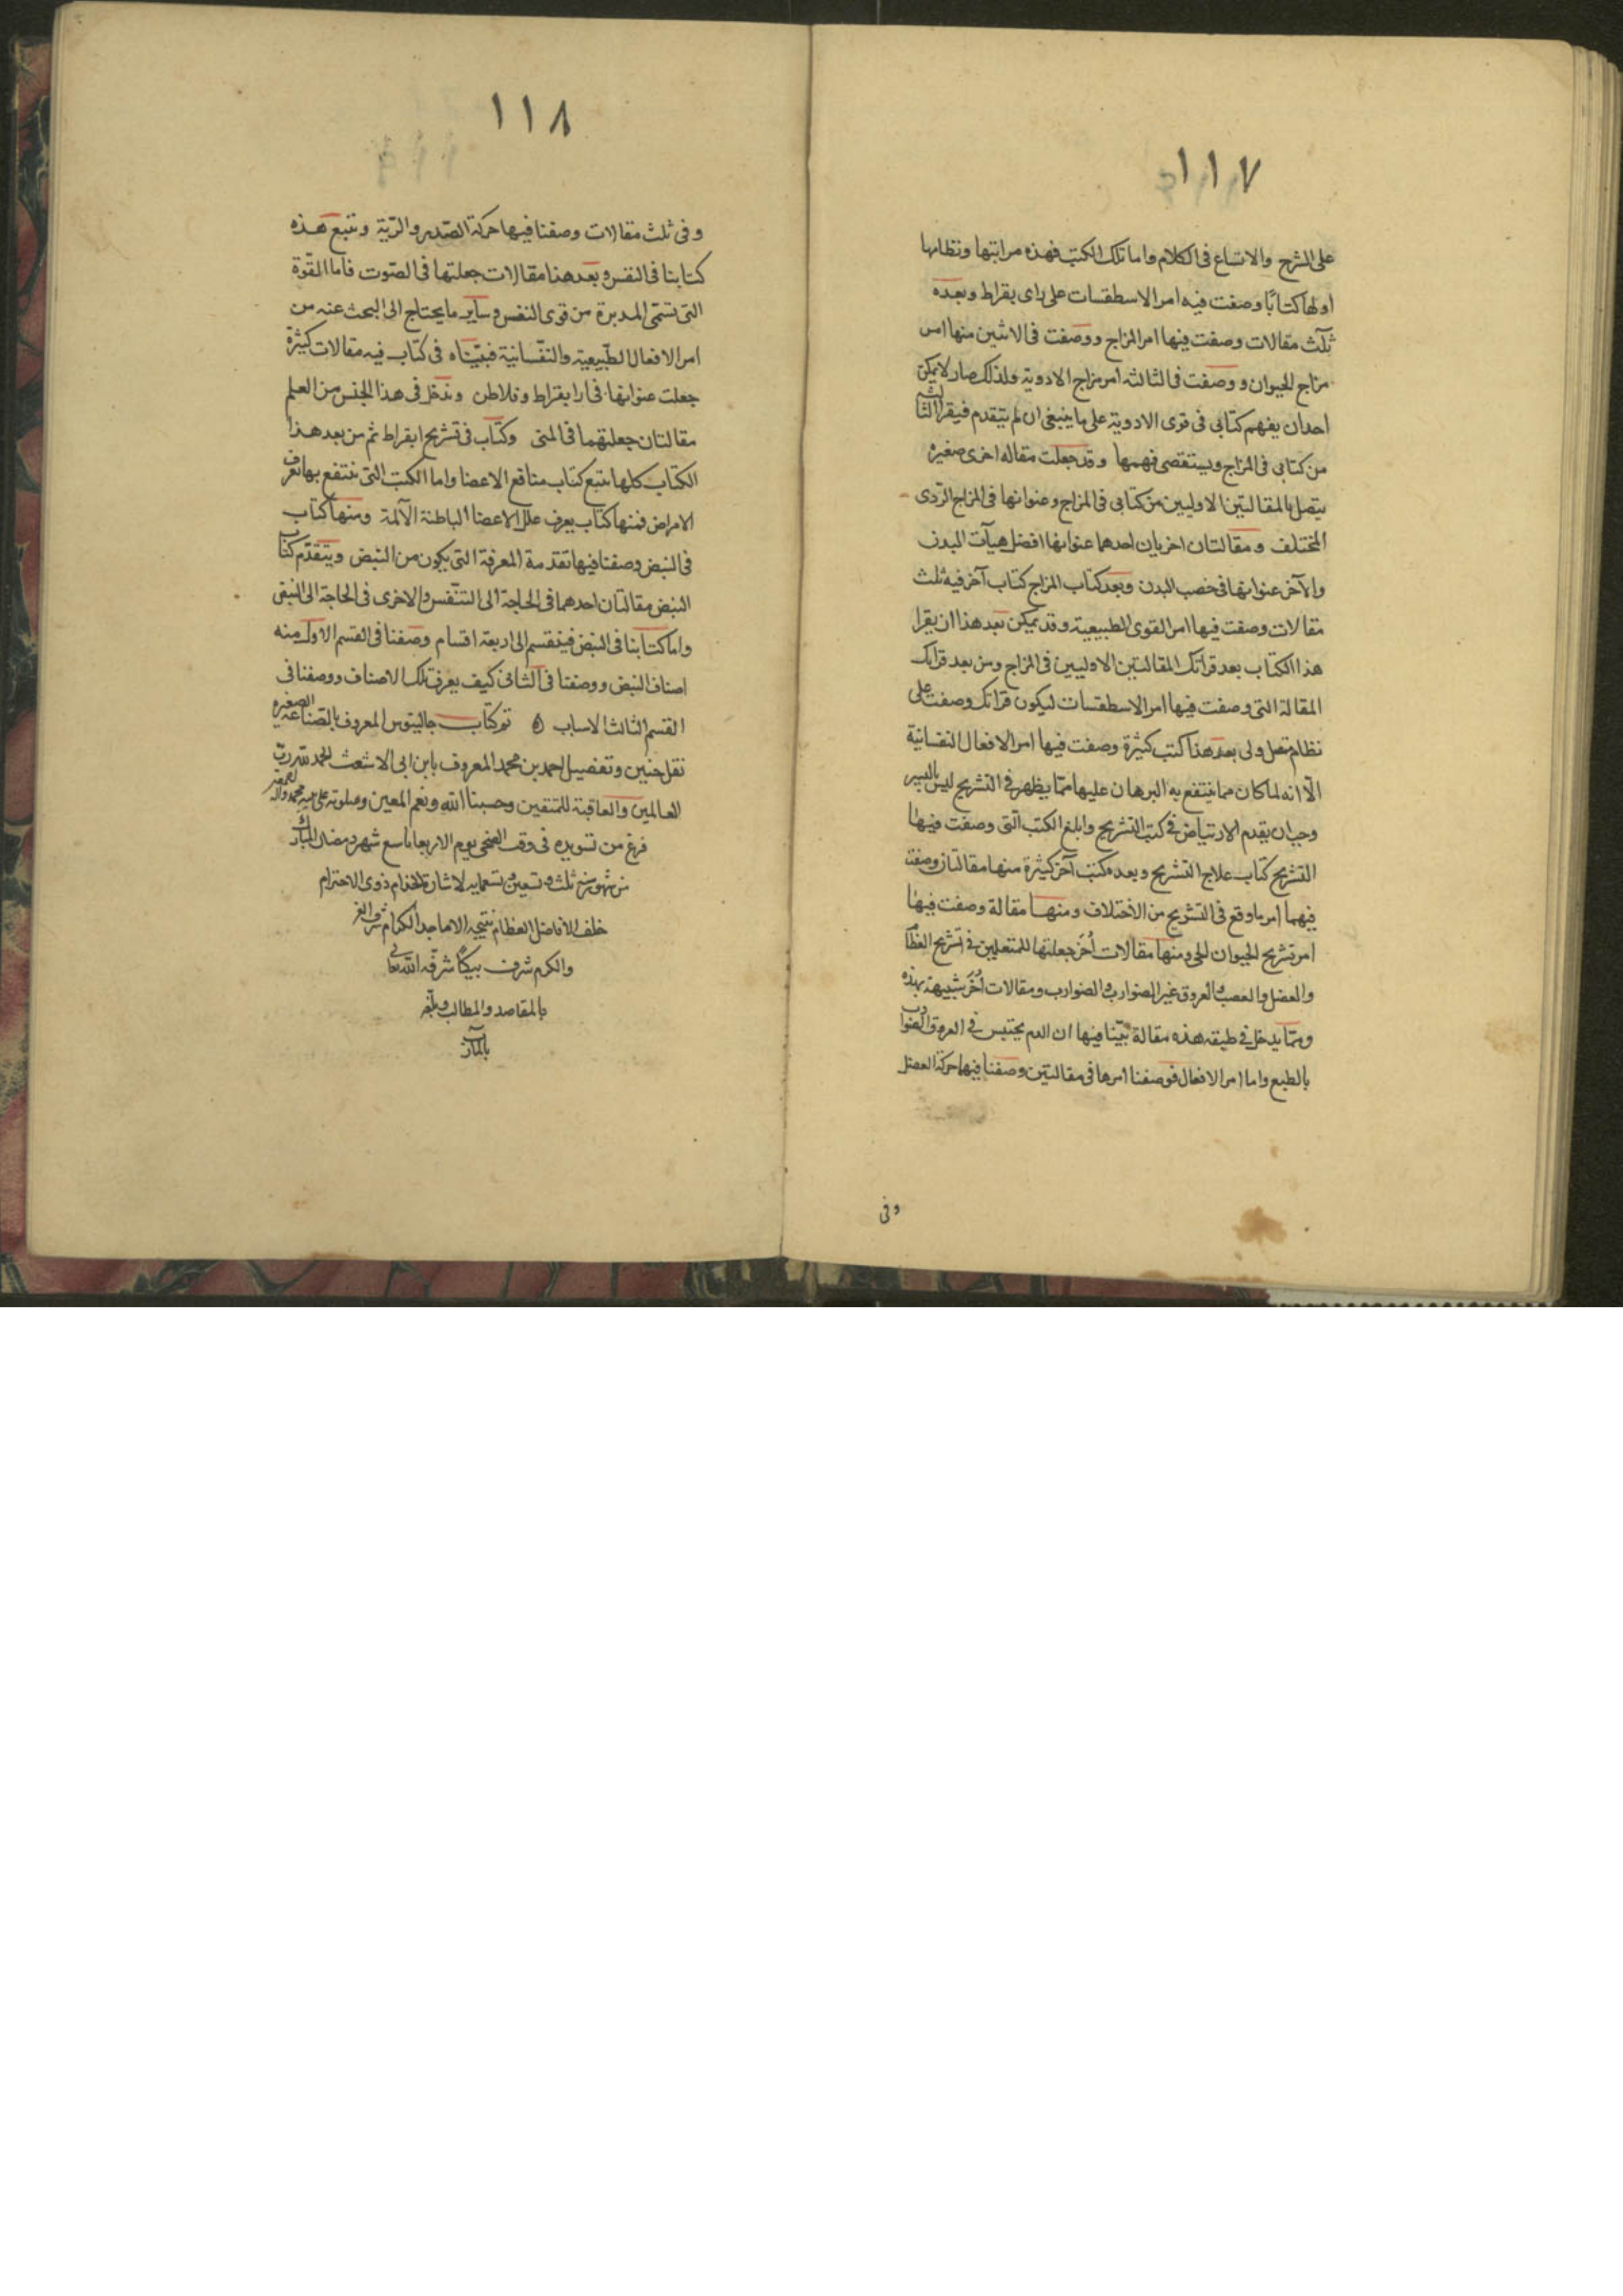 ١١٧
على الشرح والاتساع فى الكلام واما تلك الكتب فهذه مراتبها ونظامها
اولها كتابًا وصفت فيه امر الاسطقسات على راى بقراط وبعده
ثلث مقالات وصفت فيها امر المزاج ووصفت فى الاثنين منها امر
مزاج الحيوان ووصفت فى الثالثة امر مزاج الادوية ولذلك صار لا يمكن
احدا ان يفهم كتابى فى قوى الادوية على ما ينبغى ان لم يتقدم فيقرا الثالثه
من كتابى فى المزاج ويستقصى فهمها وقد جعلت مقاله اخرى صغيره
يتصل بالمقالتين الاوليين من كتابى فى المزاج وعنوانها فى المزاج الردى
المختلف ومقالتان اخريان احدهما عنوانها افضل هيآت البدن
والآخر عنوانها فى خصب البدن وبعد كتاب المزاج كتاب آخر فيه ثلث
مقالات وصفت فيها امر القوى الطبيعية وقد يمكن بعد هذا ان يقرا
هذا الكتاب بعد قراتك المقالتين الاوليين فى المزاج ومن بعد قراتك
المقالة التى وصفت فيها امر الاسطقسات ليكون قراتك وصفت على
نظام متصل ولى بعد هذا كتب كثيرة وصفت فيها امر الافعال النفسانية
الّا انه لما كان مما ينتفع به البرهان عليها ممّا يظهر فى التشريح ليس باليسير
وجب ان يقدم الارتياض فى كتب التشريح وابلغ الكتب التى وصفت فيها
التشريح كتاب علاج التشريح وبعده كتب آخر كثيرة منها مقالتان وصفت
فيهما امر ما وقع فى التشريح من الاختلاف ومنها مقالة وصفت فيها
امر تشريح الحيوان الحى ومنها مقالات أخر جعلتها للمتعلمين فى تشريح العظام
والعضل والعصب والعروق غير الضوارب والضوارب ومقالات أخر شبيهة بهذه
وممّا يدخل فى طبقة هذه مقالة بيّنا فيها ان الدم يحتبس فى العروق الضوارب
بالطبع واما امر الافعال فوصفنا امرها فى مقالتين وصفنا فيها حركة العضل
وفى
١١٨
وفى ثلث مقالات وصفنا فيها حركة الصّدر والرّية ونتبع هذه
كتابنا فى النفس وبعد هذا مقالات جعلتها فى الصّوت فاما القوّة
التى تسمّى المدبرة من قوى النفس وساير ما يحتاج الى البحث عنه من
امر الافعال الطّبيعية والنفّسانية فبيّناه فى كتاب فيه مقالات كثيرة
جعلت عنوانها فى ارا بقراط وفلاطن ويدخل فى هذا الجنس من العلم
مقالتان جعلتهما فى المنى وكتاب فى تشريح ابقراط ثم من بعد هذا
الكتاب كلها يتبع كتاب منافع الاعضا واما الكتب التى ينتفع بها تعرف
الامراض فمنها كتاب يعرف علل الاعضا الباطنة الآلمة ومنها كتاب
فى النبض وصفنا فيها تقدمة المعرفة التى يكون من النبض ويتقدّم كتاب
النبض مقالتان احدهما فى الحاجة الى التنّفس والاخرى فى الحاجة الى النبض
واما كتابنا فى النبض فينقسم الى اربعة اقسام وصفنا فى القسم الاول منه
اصناف النبض ووصفنا فى الثانى كيف يعرف تلك الاصناف ووصفنا فى
القسم الثالث الاسباب تم كتاب جالينوس المعروف بالصناعة الصغيره
نقل حنين وتفصيل احمد بن محمد المعروف بابن ابى الاشعث الحمد لله ربّ
العالمين والعاقبة للمتقين وحسبنا الله ونعم المعين وصلوته على نبيه محمد واله
فرغ من تسويده فى وقت الضحى يوم الاربعا تاسع شهر رمضان المبارك
من شهور سنة ثلث وتسعين وتسعمايه لاشارة الخدام ذوى الاحترام
خلف الافاضل العظام نتيجة الاماجد الكرام شرف العز
والكرم شرف بيكا شرفه الله تعالى
بالمقاصد والمطالب